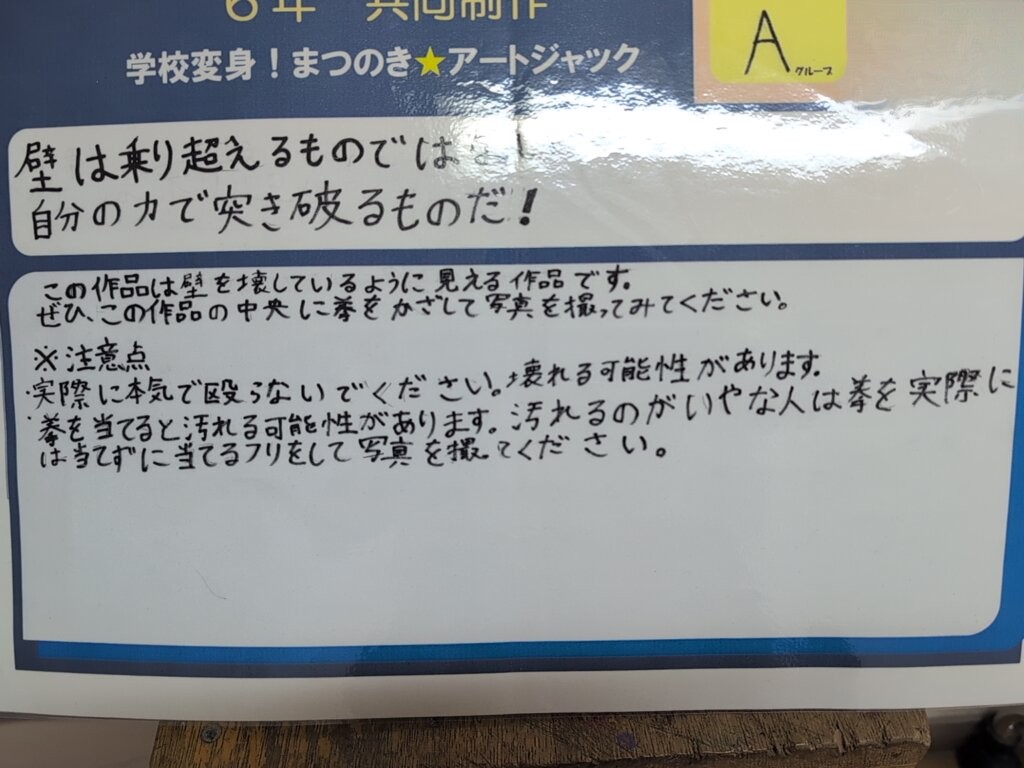 6年 共同制作
学校変身！まつのき★アートジャック
A
グループ
壁は乗り超えるものでは
自分の力で突き破るものだ！
この作品は壁を壊しているように見える作品です。
ぜひ、この作品の中央に拳をかざして写真を撮ってみてください。
※注意点
・実際に本気で殴らないでください。壊れる可能性があります。
・拳を当てると汚れる可能性があります。汚れるのがいやな人は拳を実際に
は当てずに当てるフリをして写真を撮ってください。